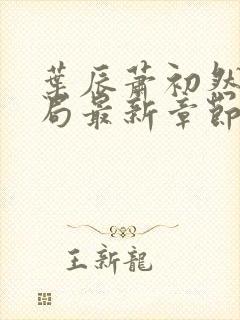 葉辰蕭初然
局最新章節
王新龍